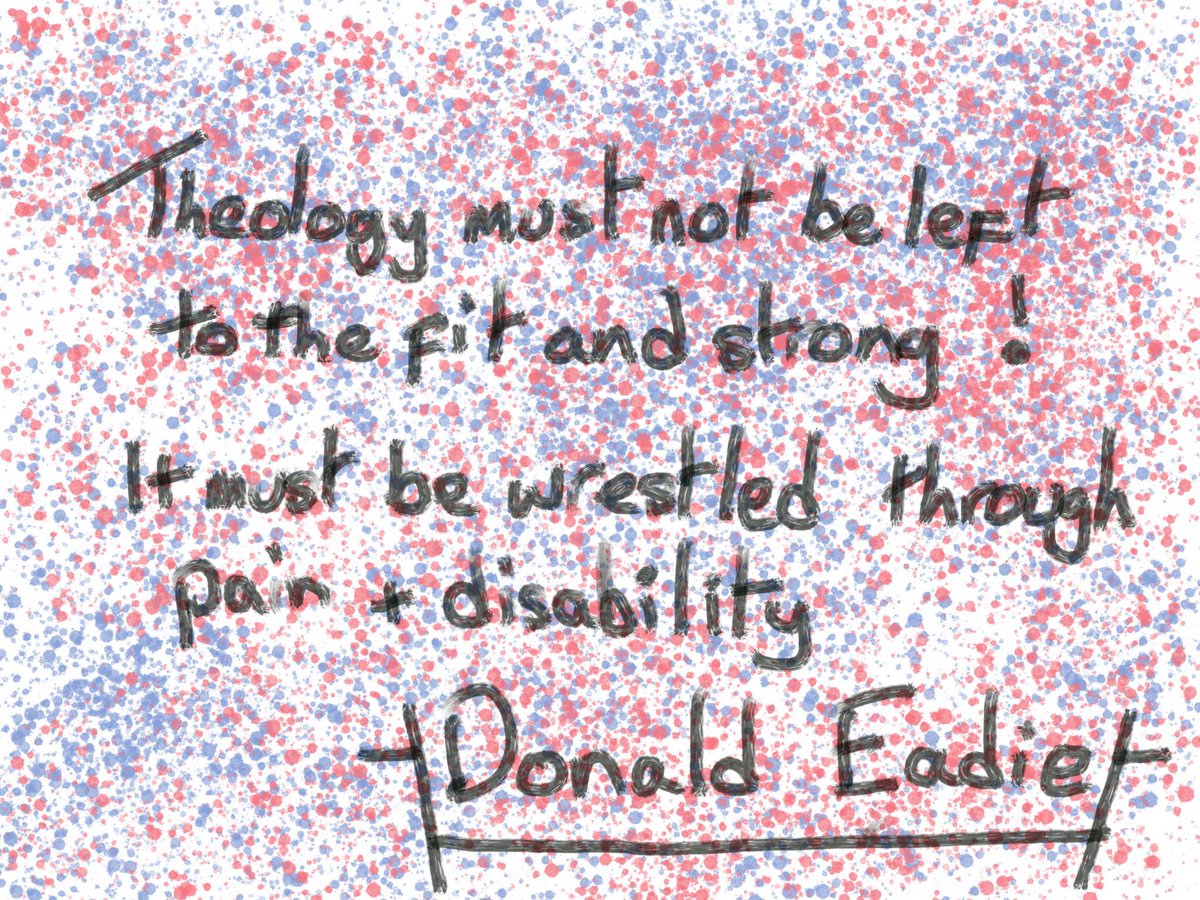 Theology must not be left
to the fit and strong !
It must be wrestled through
pain + disability
Donald Eadie